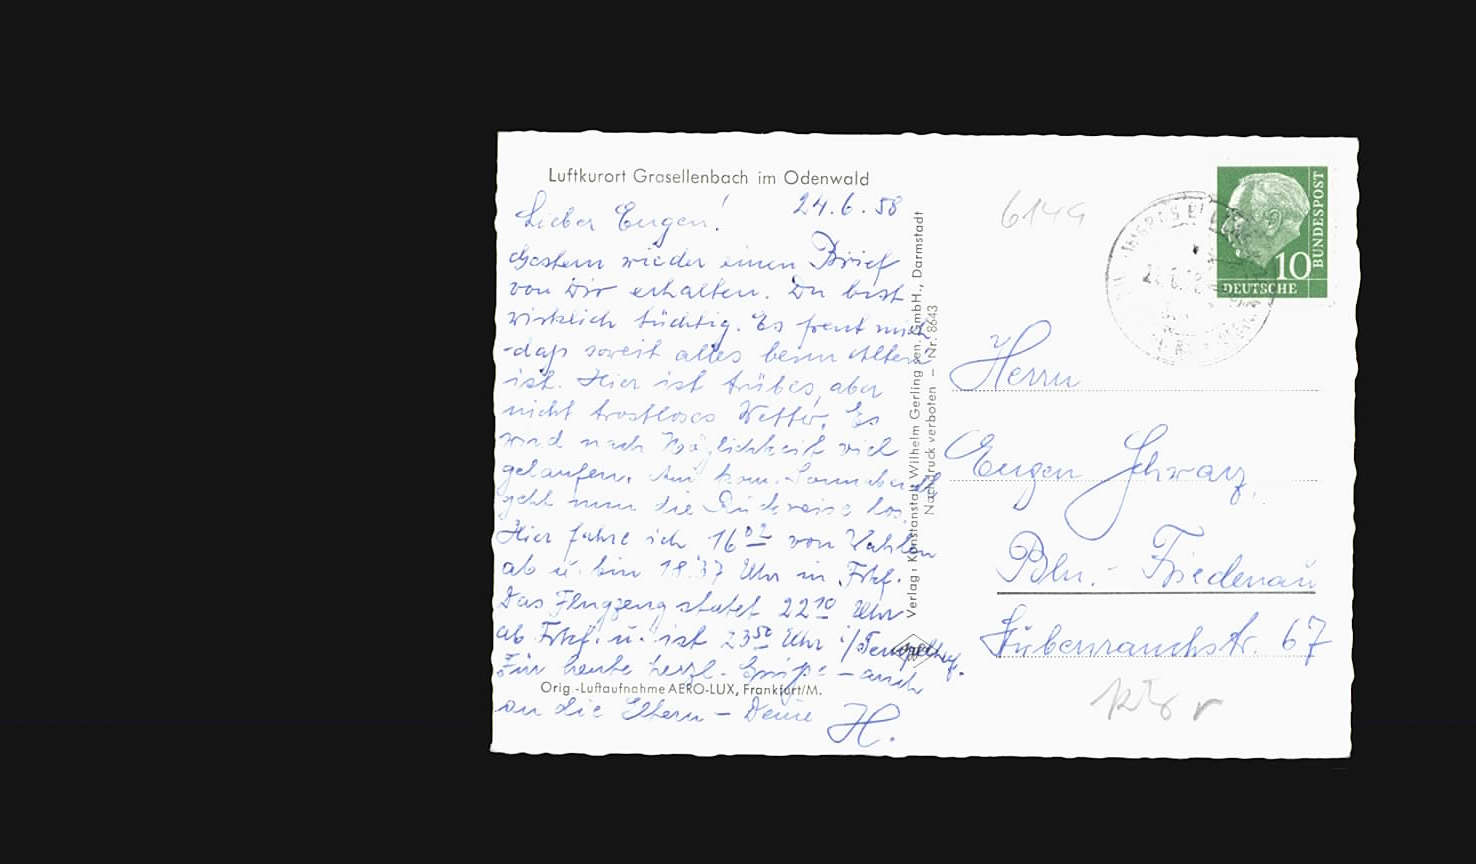 Luftkurort Grasellenbach im Odenwald
24.6.58
Lieber Eugen!
Gestern wieder einen Brief
von Dir erhalten. Du bist
wirklich tüchtig. Es freut mich
daß soweit alles beim Alten
ist. Hier ist trübes, aber
nicht trostloses Wetter. Es
wird nach Möglichkeit viel
gelaufen. Am kom. Sonnabend
geht nun die Rückreise los.
Hier fahre ich 16 02 von Wahlen
ab u. bin 18.37 Uhr in Frkf.
Das Flugzeug startet 22 10 Uhr
ab Frkf. u. ist 23 50 Uhr i/Tempelhof.
Für heute herzl. Grüße – auch
Orig.-Luftaufnahme AERO-LUX, Frankfurt/M.
an die Eltern – Deine H.
Verlag: Kunstanstalt Wilhelm Gerling sen. GmbH., Darmstadt
Nachdruck verboten – Nr. 8643
6149
10
DEUTSCHE
BUNDESPOST
Herrn
Eugen Schwarz,
Bln.- Friedenau
Stubenrauchstr. 67